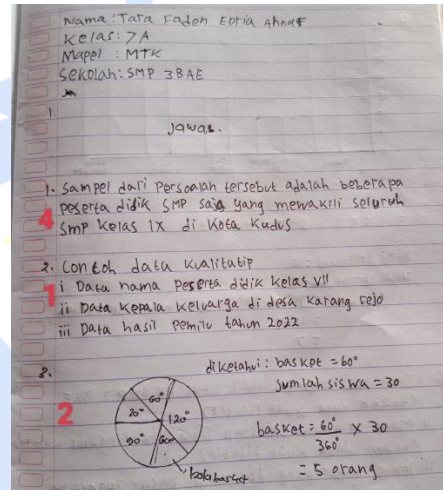 Nama : Tara Faden Ebtia Ahnaf
Kelas : 7A
Mapel : MTK
Sekolah : SMP 3 BAE
1.
Jawab.
1. Sampel dari Persoalan tersebut adalah beberapa
peserta didik SMP saja yang mewakili seluruh
4
SMP kelas IX di Kota Kudus
2. Contoh data Kualitatip
i Data nama Peserta didik Kelas VII
1
ii Data Kepala Keluarga di desa Karang rejo
iii Data hasil Pemilu tahun 2022
3.
diketahui : basket = 60°
jumlah siswa = 30
2
60°
120°
60°
90°
basket = 60° / 360° x 30
bola basket
= 5 orang